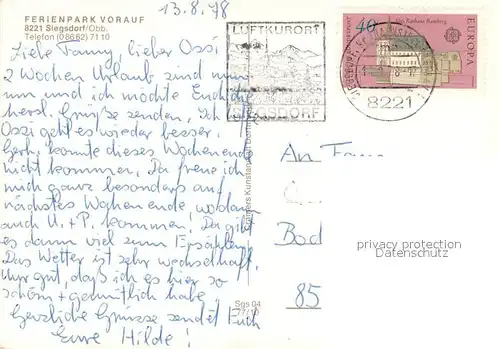 13.8.78
FERIENPARK VORAUF
8221 Siegsdorf/Obb.
Telefon (08662) 7110
LUFTKURORT
SIEGSDORF
40
Altes Rathaus Bamberg
EUROPA
8221
Liebe Fanny, lieber Ossi
2 Wochen Urlaub sind nun
um und ich möchte Euch
herzl. Grüße senden, Ich
Ossi geht es wieder besser.
Gerh. konnte dieses Wochenende
nicht kommen. Da freue ich
mich ganz besonders auf
nächstes Wochenende, wo dann
auch U. + P. kommen. Da gibt
es dann viel zum Erzählen.
Das Wetter ist sehr wechselhaft.
Nur gut, daß ich es hier so
schön + gemütlich habe
Herzliche Grüsse sendet Euch
Eure Hilde!
An
Bad
85
privacy protection
privacy protection
Sgs 04